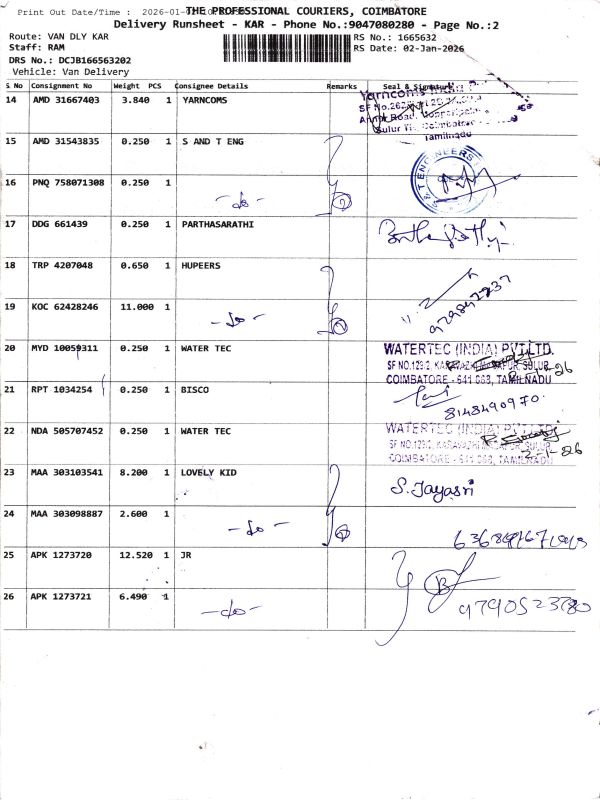 Print Out Date/Time : 2026-01-
THE PROFESSIONAL COURIERS, COIMBATORE
Delivery Runsheet - KAR - Phone No.:9047080280 - Page No.:2
Route: VAN DLY KAR
RS No.: 1665632
Staff: RAM
RS Date: 02-Jan-2026
DRS No.: DCJB166563202
Vehicle: Van Delivery
S No Consignment No Weight PCS Consignee Details Remarks Seal & Signature
14 AMD 31667403 3.840 1 YARNCOMS
Yarncoms India
SF No.262
Road,
Sulur Coimbatore
Tamilnadu
15 AMD 31543835 0.250 1 S AND T ENG
S & T ENGINEERS
16 PNQ 758071308 0.250 1 -do- 2
17 DDG 661439 0.250 1 PARTHASARATHI
18 TRP 4207048 0.650 1 HUPEERS
19 KOC 62428246 11.000 1 -do- 2
20 MYD 10059311 0.250 1 WATER TEC
WATERTEC (INDIA) PVT.LTD.
SF NO.129/2, KARAVAZHI MADAPUR, SULUR,
COIMBATORE - 641 668, TAMILNADU
21 RPT 1034254 0.250 1 BISCO
8148490970.
22 NDA 505707452 0.250 1 WATER TEC
WATERTEC (INDIA) PVT.LTD.
SF NO.129/2, KARAVAZHI MADAPUR, SULUR,
COIMBATORE - 641 668, TAMILNADU
2-1-26
23 MAA 303103541 8.200 1 LOVELY KID
S. Jayasri
24 MAA 303098887 2.600 1 -do-
25 APK 1273720 12.520 1 JR
26 APK 1273721 6.490 1 -do-
9790523780